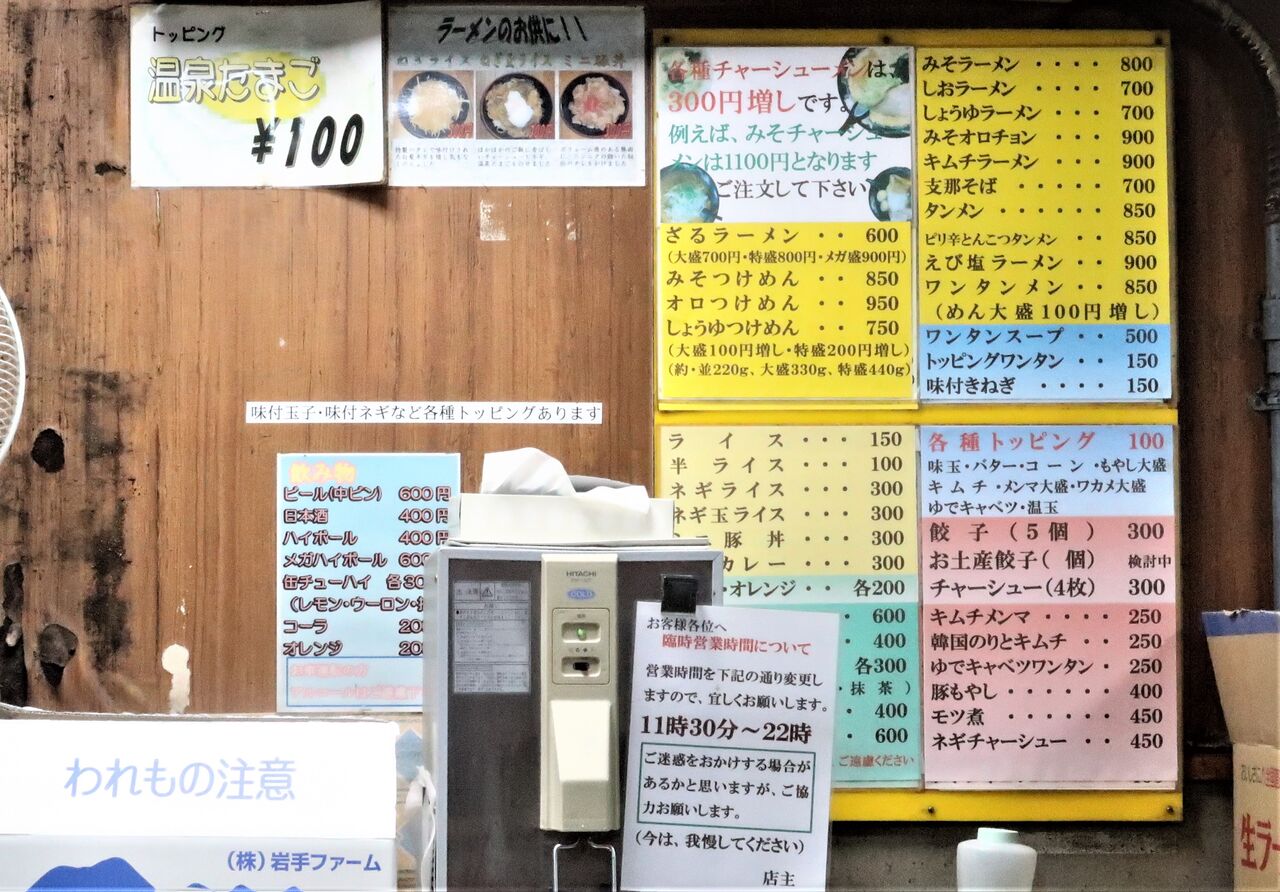 トッピング
温泉たまご
¥100
ラーメンのお供に!!
ねぎライス ねぎ玉ライス ミニ豚丼
各種チャーシューメンは、
300円増しです。
例えば、みそチャーシュー
メンは1100円となります
ご注文して下さい
ざるラーメン ・・ 600
(大盛700円・特盛800円・メガ盛900円)
みそつけめん ・・ 850
オロつけめん ・・ 950
しょうゆつけめん ・・ 750
(大盛100円増し・特盛200円増し)
(約・並220g、大盛330g、特盛440g)
みそラーメン ・・・・ 800
しおラーメン ・・・・ 700
しょうゆラーメン ・・ 700
みそオロチョン ・・・ 900
キムチラーメン ・・・ 900
支那そば ・・・・・ 700
タンメン ・・・・・・ 850
ピリ辛とんこつタンメン ・・ 850
えび塩ラーメン ・・ 900
ワンタンメン ・・ 850
(めん大盛100円増し)
ワンタンスープ ・・ 500
トッピングワンタン ・・ 150
味付きねぎ ・・・・ 150
味付玉子・味付ネギなど各種トッピングあります
飲み物
ビール(中ビン) 600円
日本酒 400円
ハイボール 400円
メガハイボール 600
缶チューハイ 各30
(レモン・ウーロン・
コーラ 20
オレンジ 20
お車運転の方
アルコールはご遠慮下
ライス ・・・ 150
半ライス ・・・ 100
ネギライス ・・・ 300
ネギ玉ライス ・・・ 300
豚丼 ・・・ 300
カレー ・・・ 300
・オレンジ ・・ 各200
・ 600
・ 400
各300
・抹茶)
・ 400
・ 600
ご遠慮ください
各種トッピング 100
味玉・バター・コーン・もやし大盛
キムチ・メンマ大盛・ワカメ大盛
ゆでキャベツ・温玉
餃子(5個) 300
お土産餃子( 個) 検討中
チャーシュー(4枚) 300
キムチメンマ ・・・ 250
韓国のりとキムチ ・・ 250
ゆでキャベツワンタン・ 250
豚もやし ・・・・・ 400
モツ煮 ・・・・・・ 450
ネギチャーシュー ・・ 450
HITACHI
COLD
お客様各位へ
臨時営業時間について
営業時間を下記の通り変更し
ますので、宜しくお願いします。
11時30分〜22時
ご迷惑をおかけする場合が
あるかと思いますが、ご協
力お願いします。
(今は、我慢してください)
店主
われもの注意
(株)岩手ファーム
生ラー